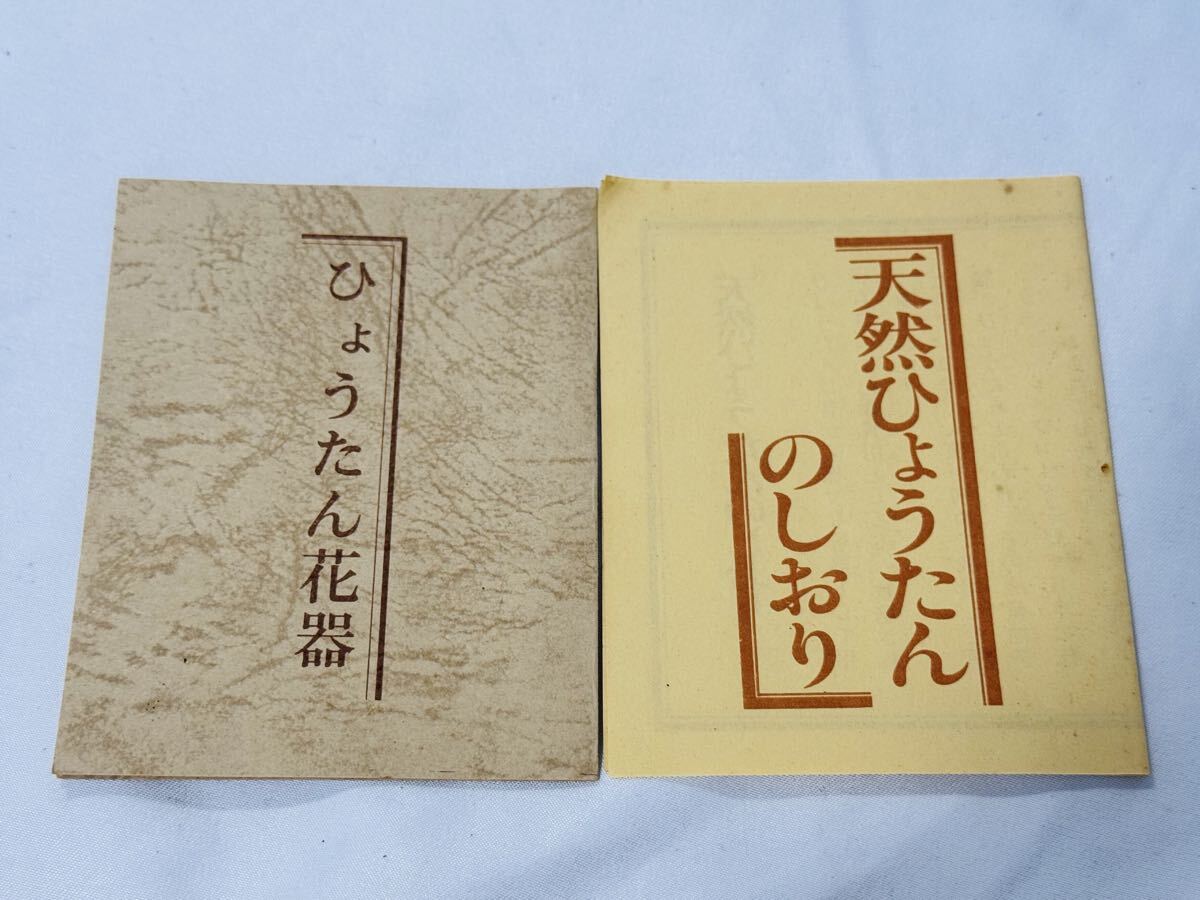 ひょうたん花器
天然ひょうたん
のしおり